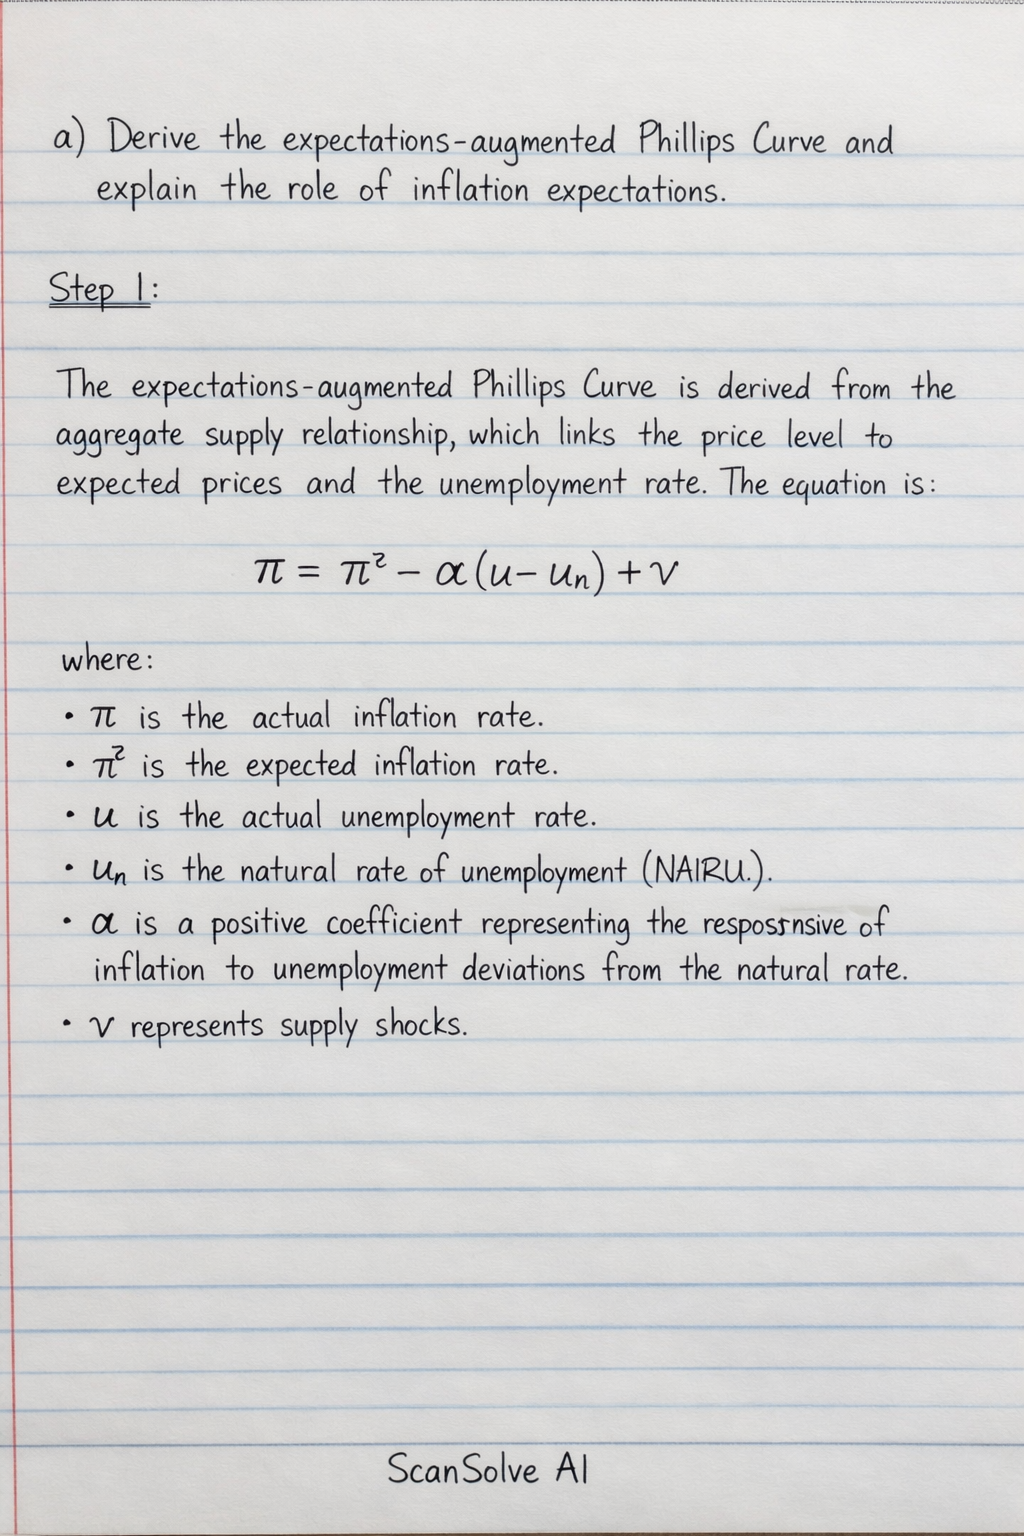 a) Derive the expectations-augmented Phillips Curve and
explain the role of inflation expectations.
Step 1:
The expectations-augmented Phillips Curve is derived from the
aggregate supply relationship, which links the price level to
expected prices and the unemployment rate. The equation is:
π = π² − α(u − uₙ) + ν
where:
• π is the actual inflation rate.
• π² is the expected inflation rate.
• u is the actual unemployment rate.
• uₙ is the natural rate of unemployment (NAIRU.).
• α is a positive coefficient representing the respossnsive of
inflation to unemployment deviations from the natural rate.
• ν represents supply shocks.
ScanSolve AI